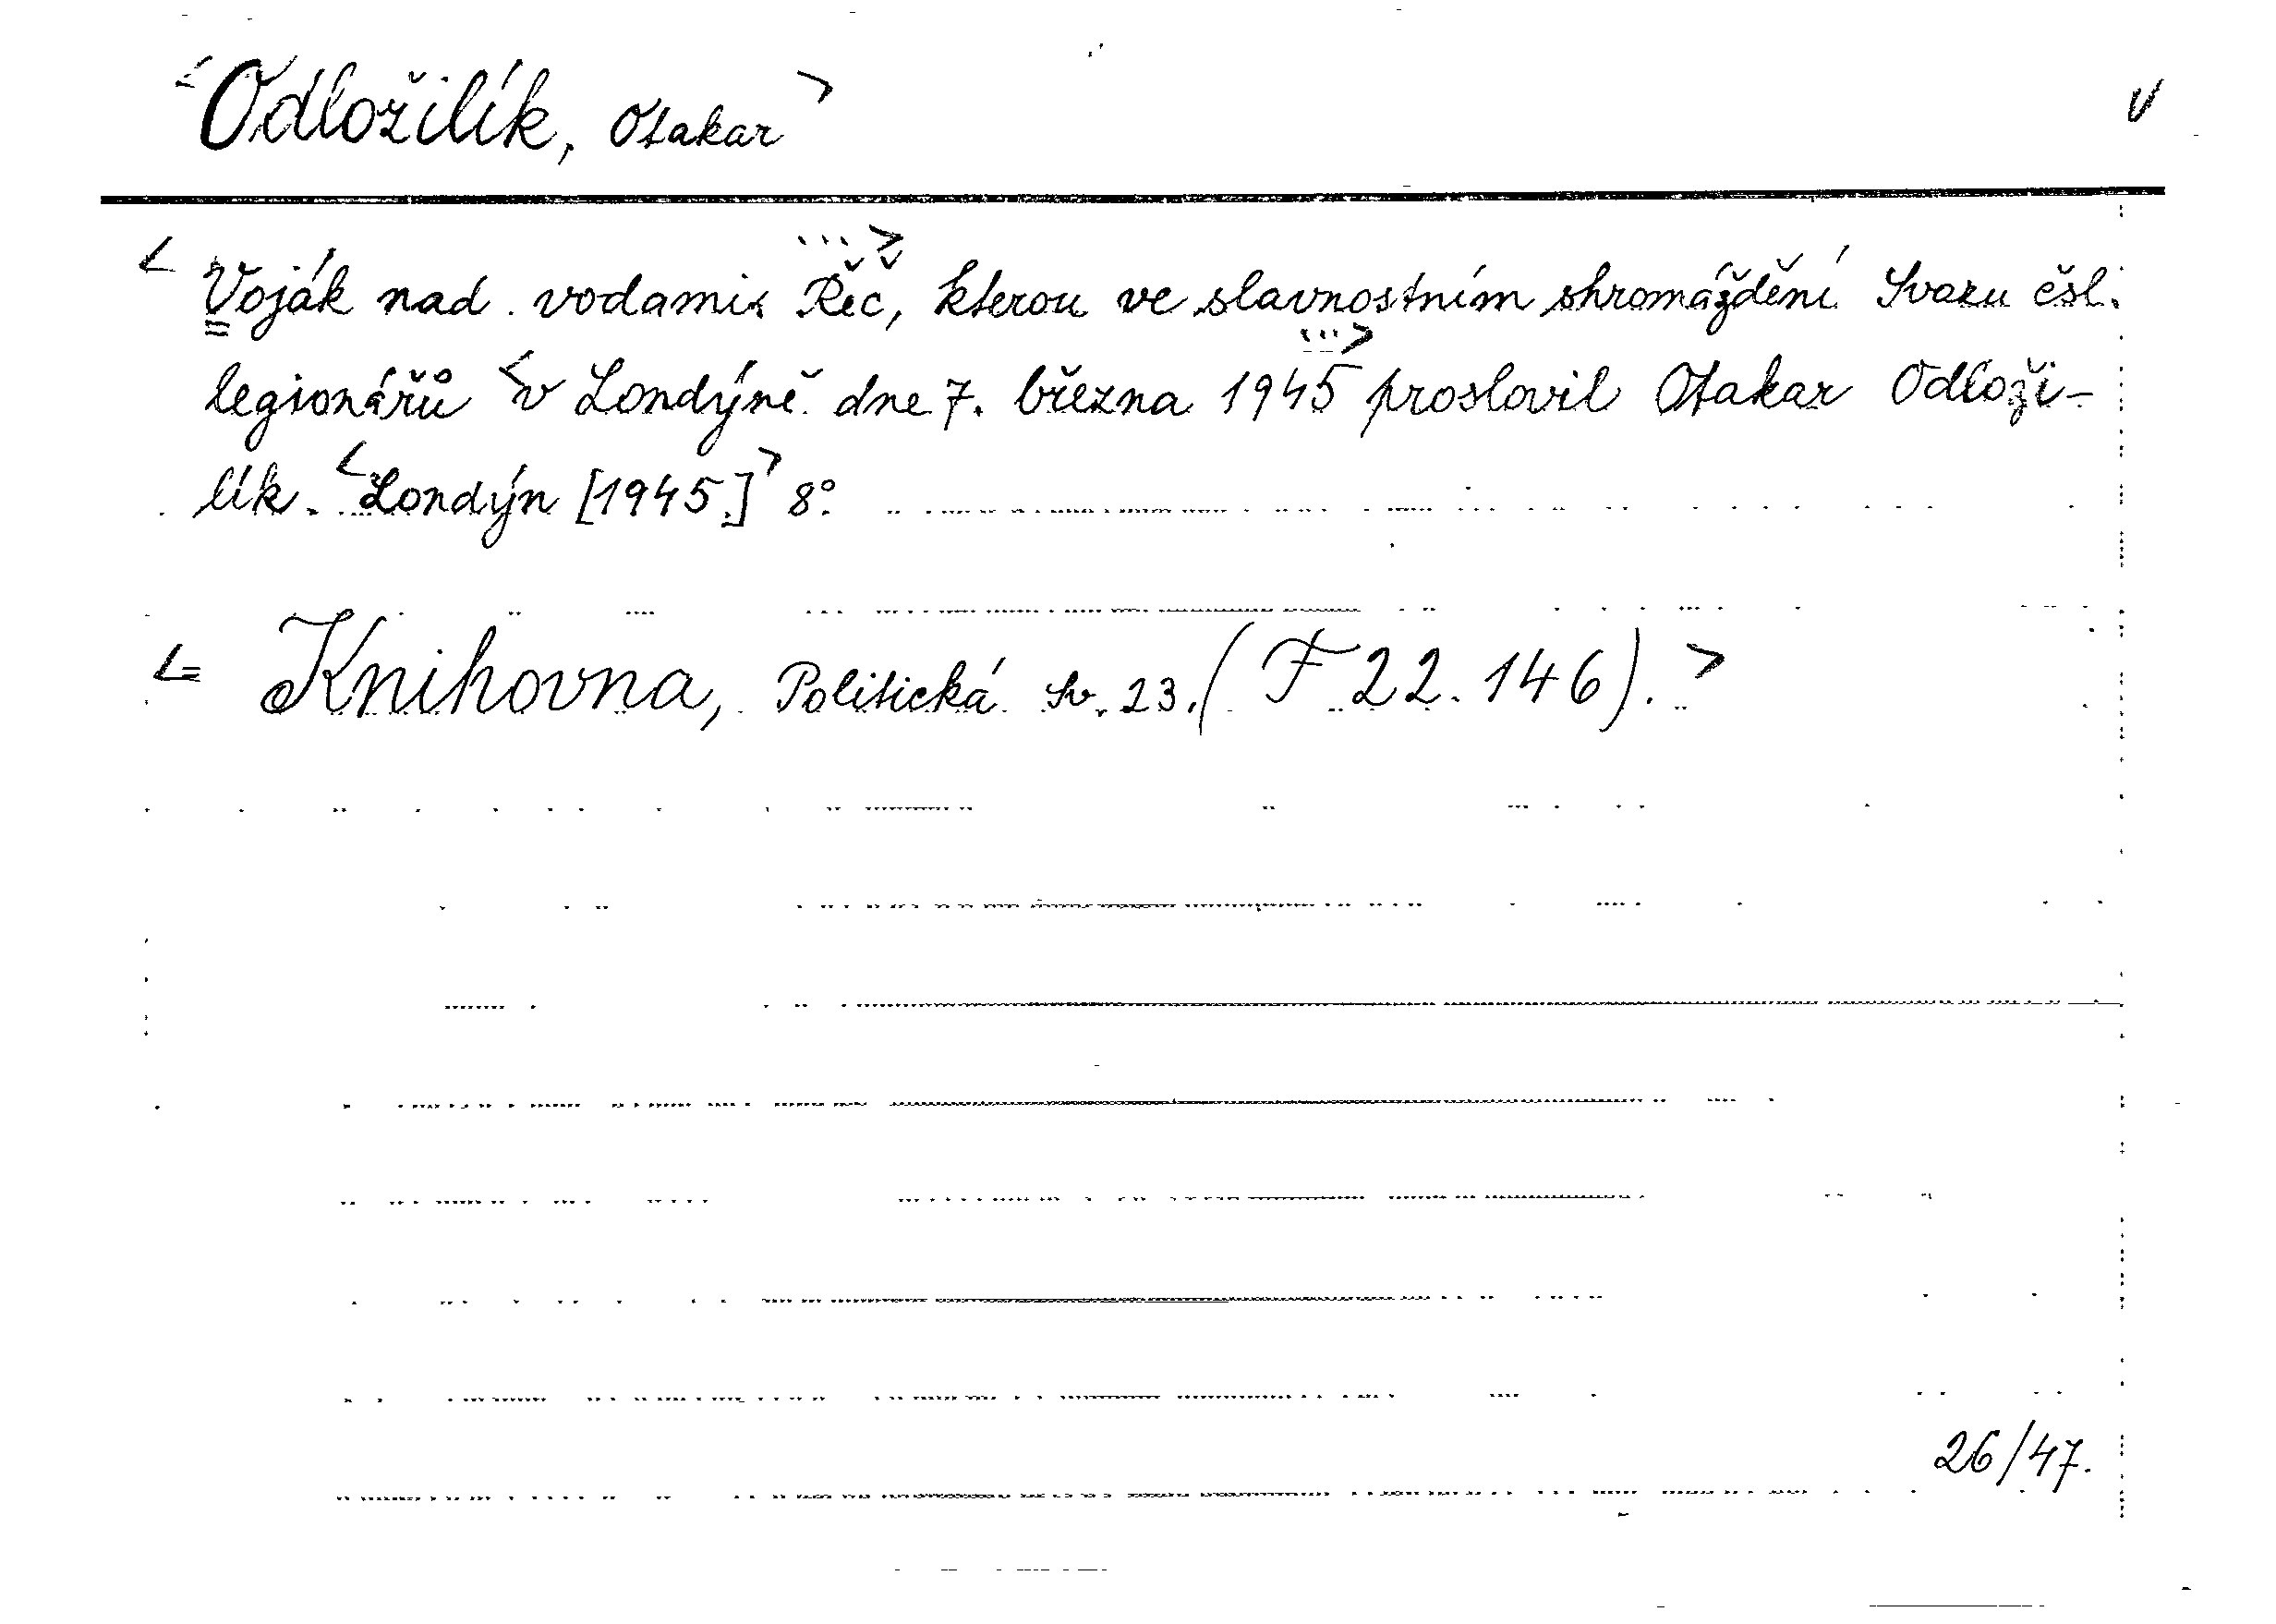 <Odložilík, Otakar> V
<Voják nad vodami. Řeč, ...> kterou ve slavnostním shromáždění Svazu čsl.
legionářů <v Londýně dne 7. března 1945 ...> proslovil Otakar Odloži-
lík. <Londýn [1945.]> 8°.
<= Knihovna, Politická Sv. 23. (F 22.146).>
26/47.